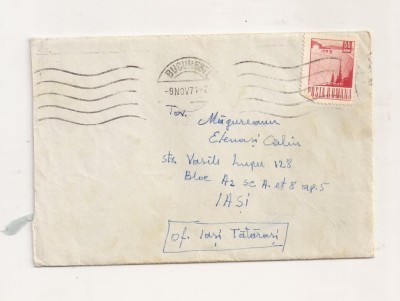 BUCUREȘTI
-9NOV71-
POSTA ROMANA
Tov. Măgureanu
Elena și Calin
str. Vasile Lupu 128
Bloc A2 sc A. et 8 ap. 5
IAȘI
Of. Iași Tătărași